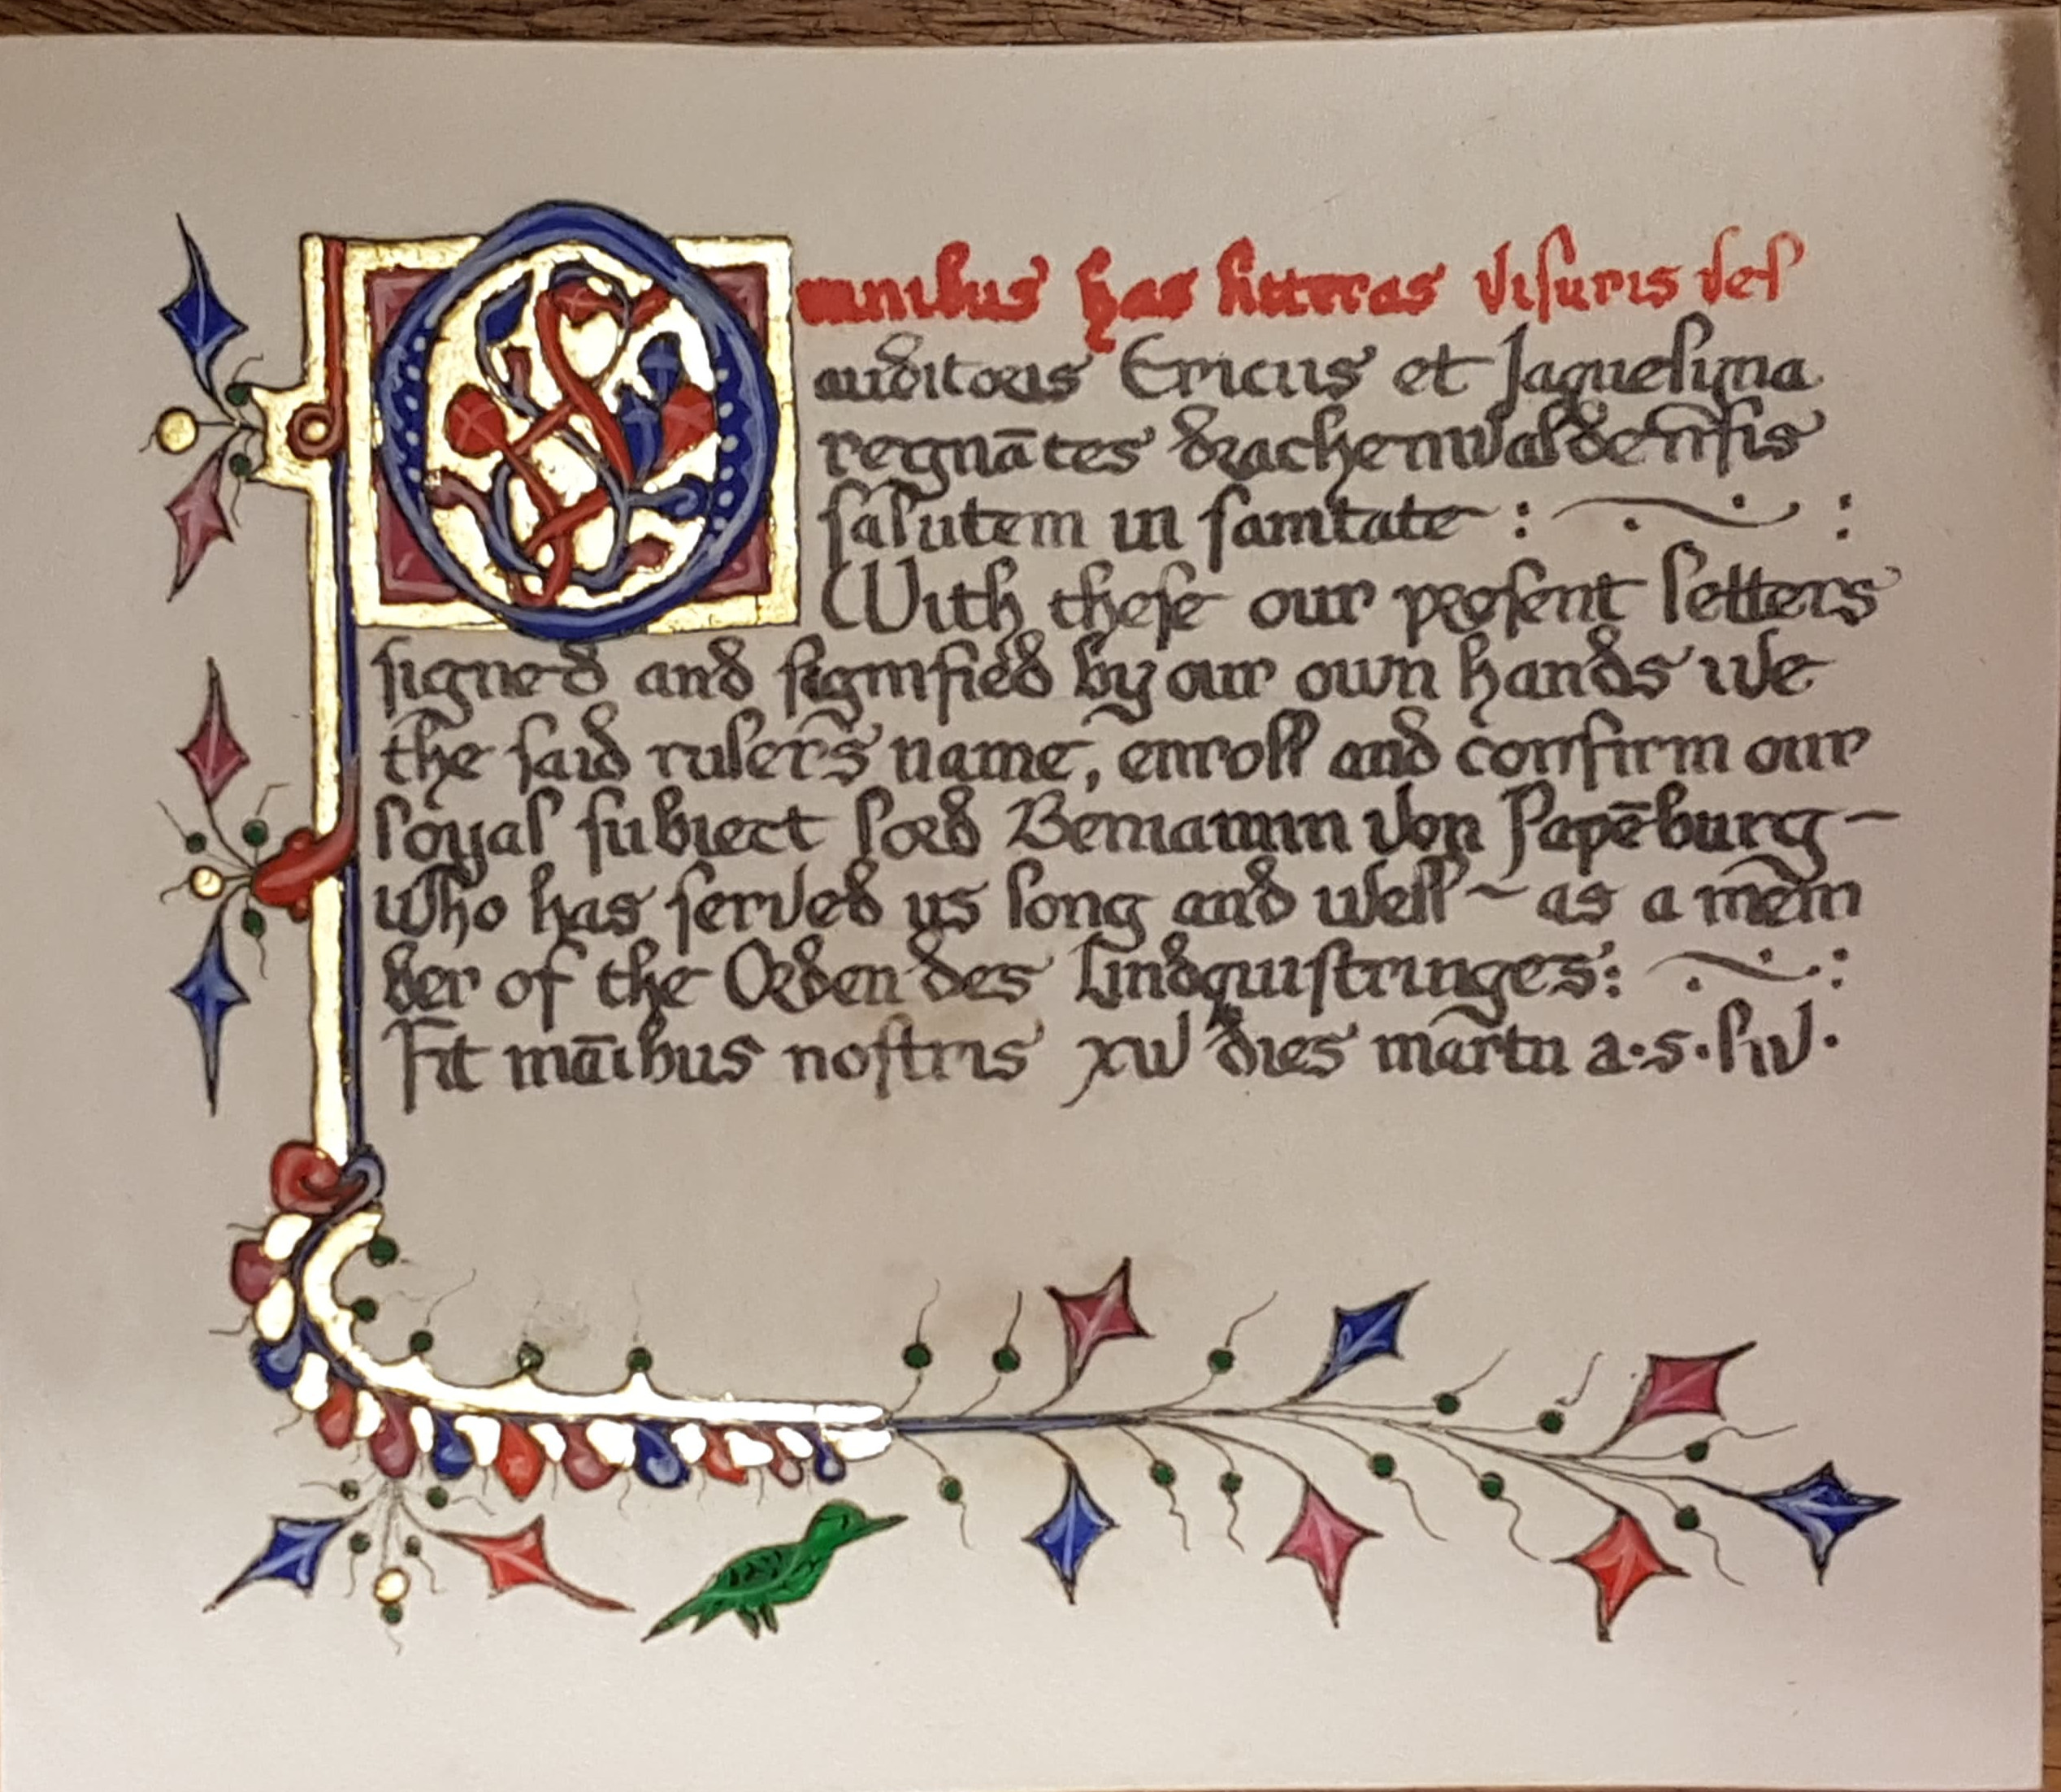 Omnibus has litteras visuris vel
auditoris Ericus et Jaquelina
regnātes drachenwaldeñsis
salutem in sanitate :
With these our present letters
signed and signified by our own hands we
the said rulers name, enroll and confirm our
loyal subiect lord Beniamin von Papēburg
who has served us long and well ~ as a mem
ber of the Orden des Lindquistringes:
Fit māibus nostris xiv dies martii a·s·liv·